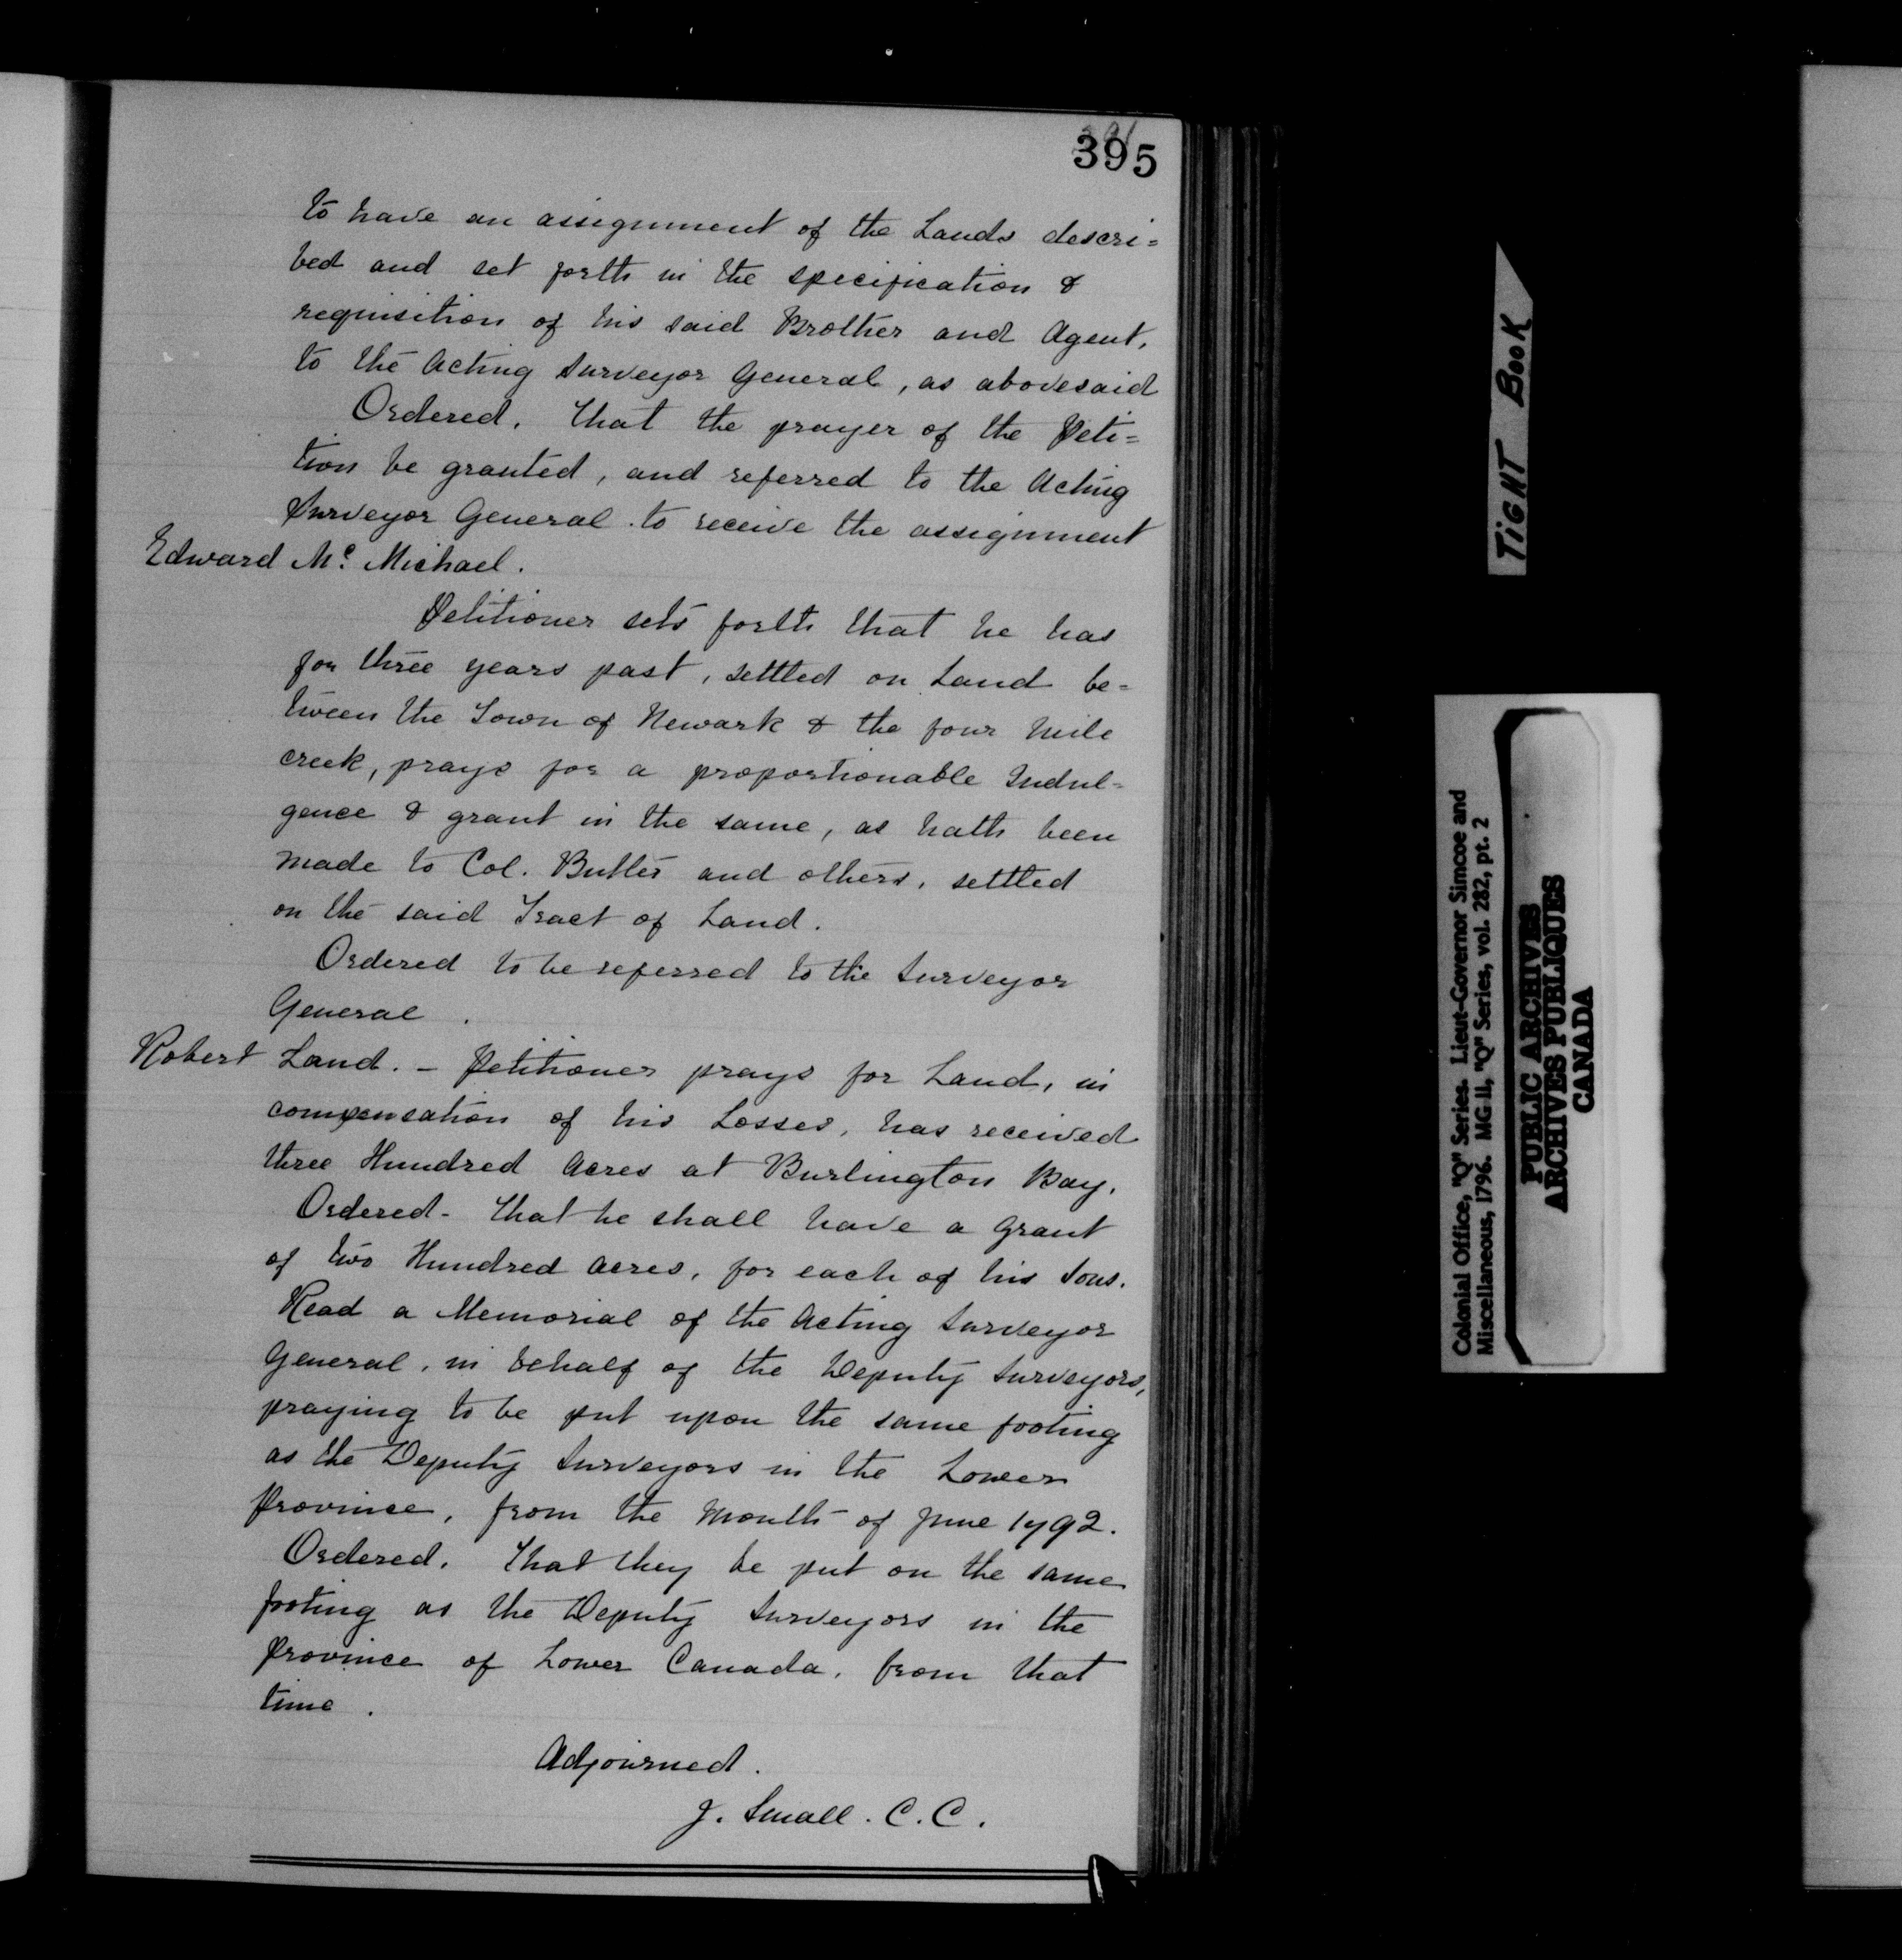 395
to have an assignment of the Lands descri=
bed and set forth in the specification &
requisition of his said Brother and Agent,
to the Acting Surveyor General, as abovesaid
Ordered. That the prayer of the Peti=
tion be granted, and referred to the Acting
Surveyor General. to receive the assignment
Edward Mc. Michael.
Petitioner sets forth that he has
for three years past, settled on Land be=
tween the Town of Newark & the four Mile
creek, prays for a proportionable Indul=
gence & grant in the same, as hath been
made to Col. Butler and others, settled
on the said Tract of Land.
Ordered to be referred to the Surveyor
General.
Robert Land. - Petitioner prays for Land, in
compensation of his Losses, has received
three Hundred Acres at Burlington Bay.
Ordered - That he shall have a grant
of two Hundred Acres, for each of his Sons.
Read a Memorial of the Acting Surveyor
General, in behalf of the Deputy Surveyors,
praying to be put upon the same footing
as the Deputy Surveyors in the Lower
Province, from the Month of June 1792.
Ordered. That they be put on the same
footing as the Deputy Surveyors in the
Province of Lower Canada, from that
time.
Adjourned.
J. Small. C.C.
TIGHT BOOK
Colonial Office, "Q" Series. Lieut-Governor Simcoe and
Miscellaneous, 1796. MG 11, "Q" Series, vol. 282, pt. 2
PUBLIC ARCHIVES
ARCHIVES PUBLIQUES
CANADA